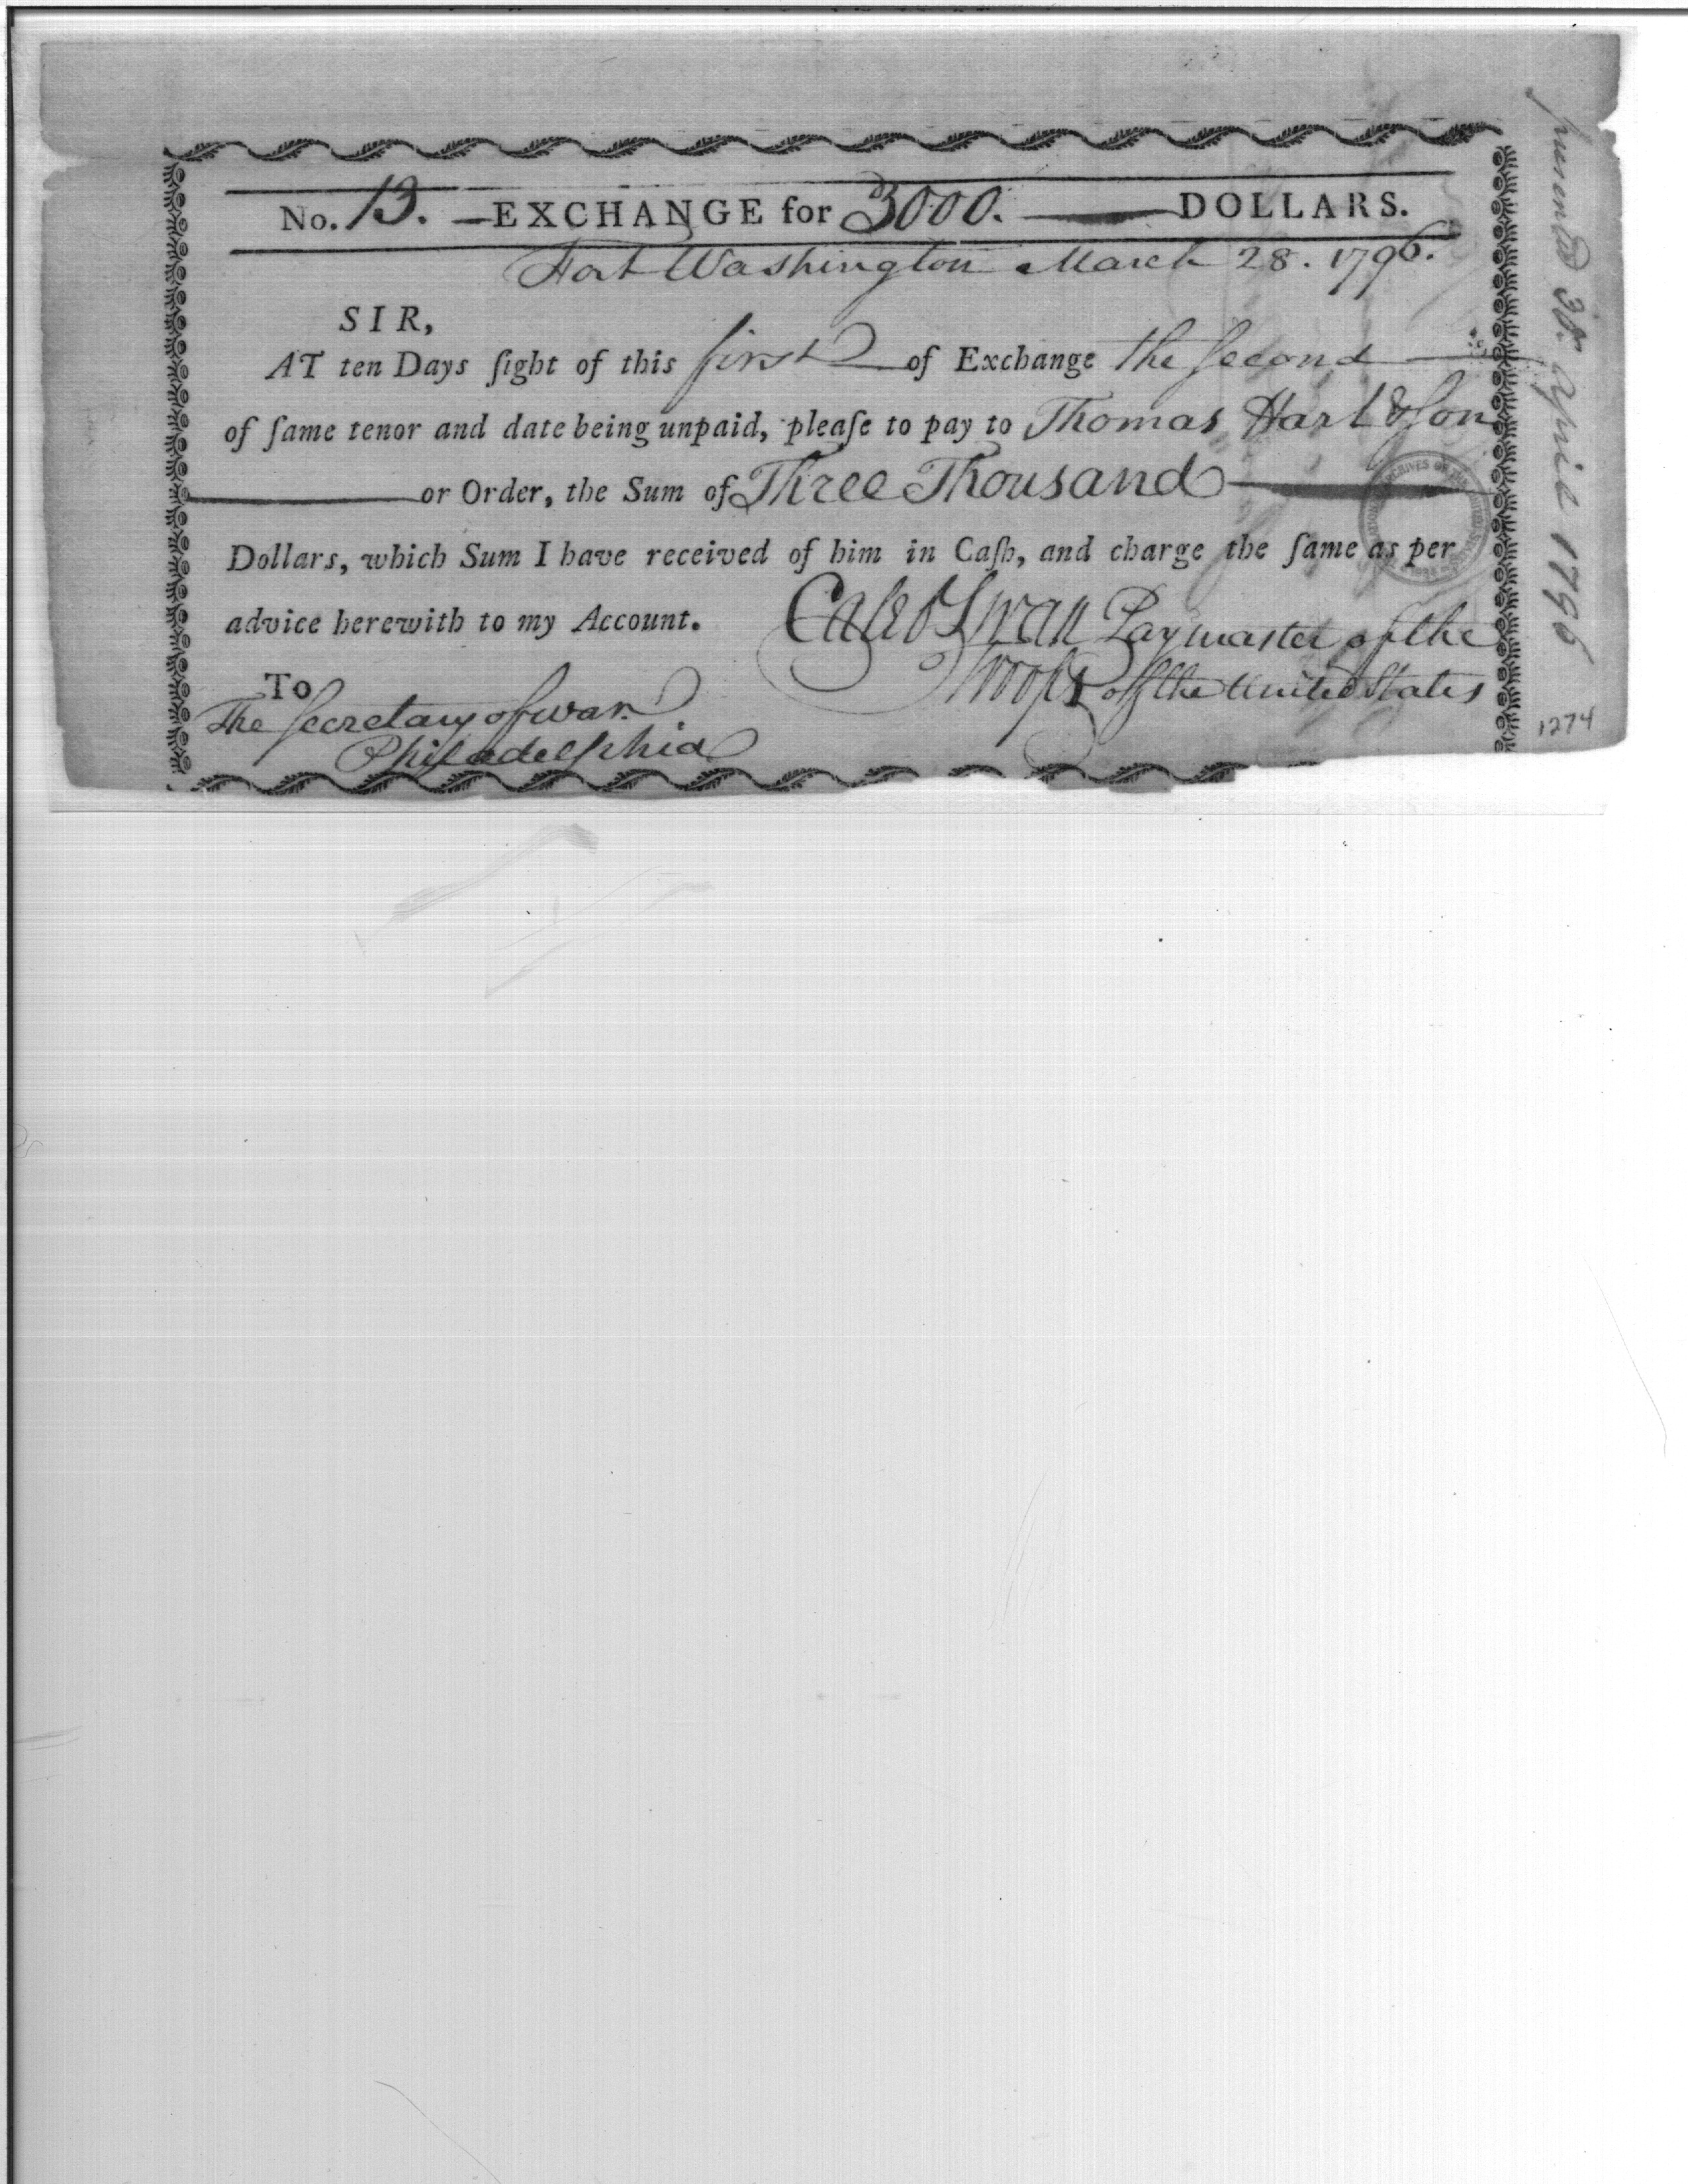 No. 13. —EXCHANGE for 3000. — DOLLARS.
Fort Washington March 28. 1796.
SIR,
AT ten Days ſight of this first of Exchange the second
of ſame tenor and date being unpaid, pleaſe to pay to Thomas Hart & Son
or Order, the Sum of Three Thousand
Dollars, which Sum I have received of him in Caſh, and charge the ſame as per
advice herewith to my Account.
Caleb Swan Paymaster of the
Troops of the United States
To
The Secretary of war.
Philadelphia
presented 30. April 1796
1274